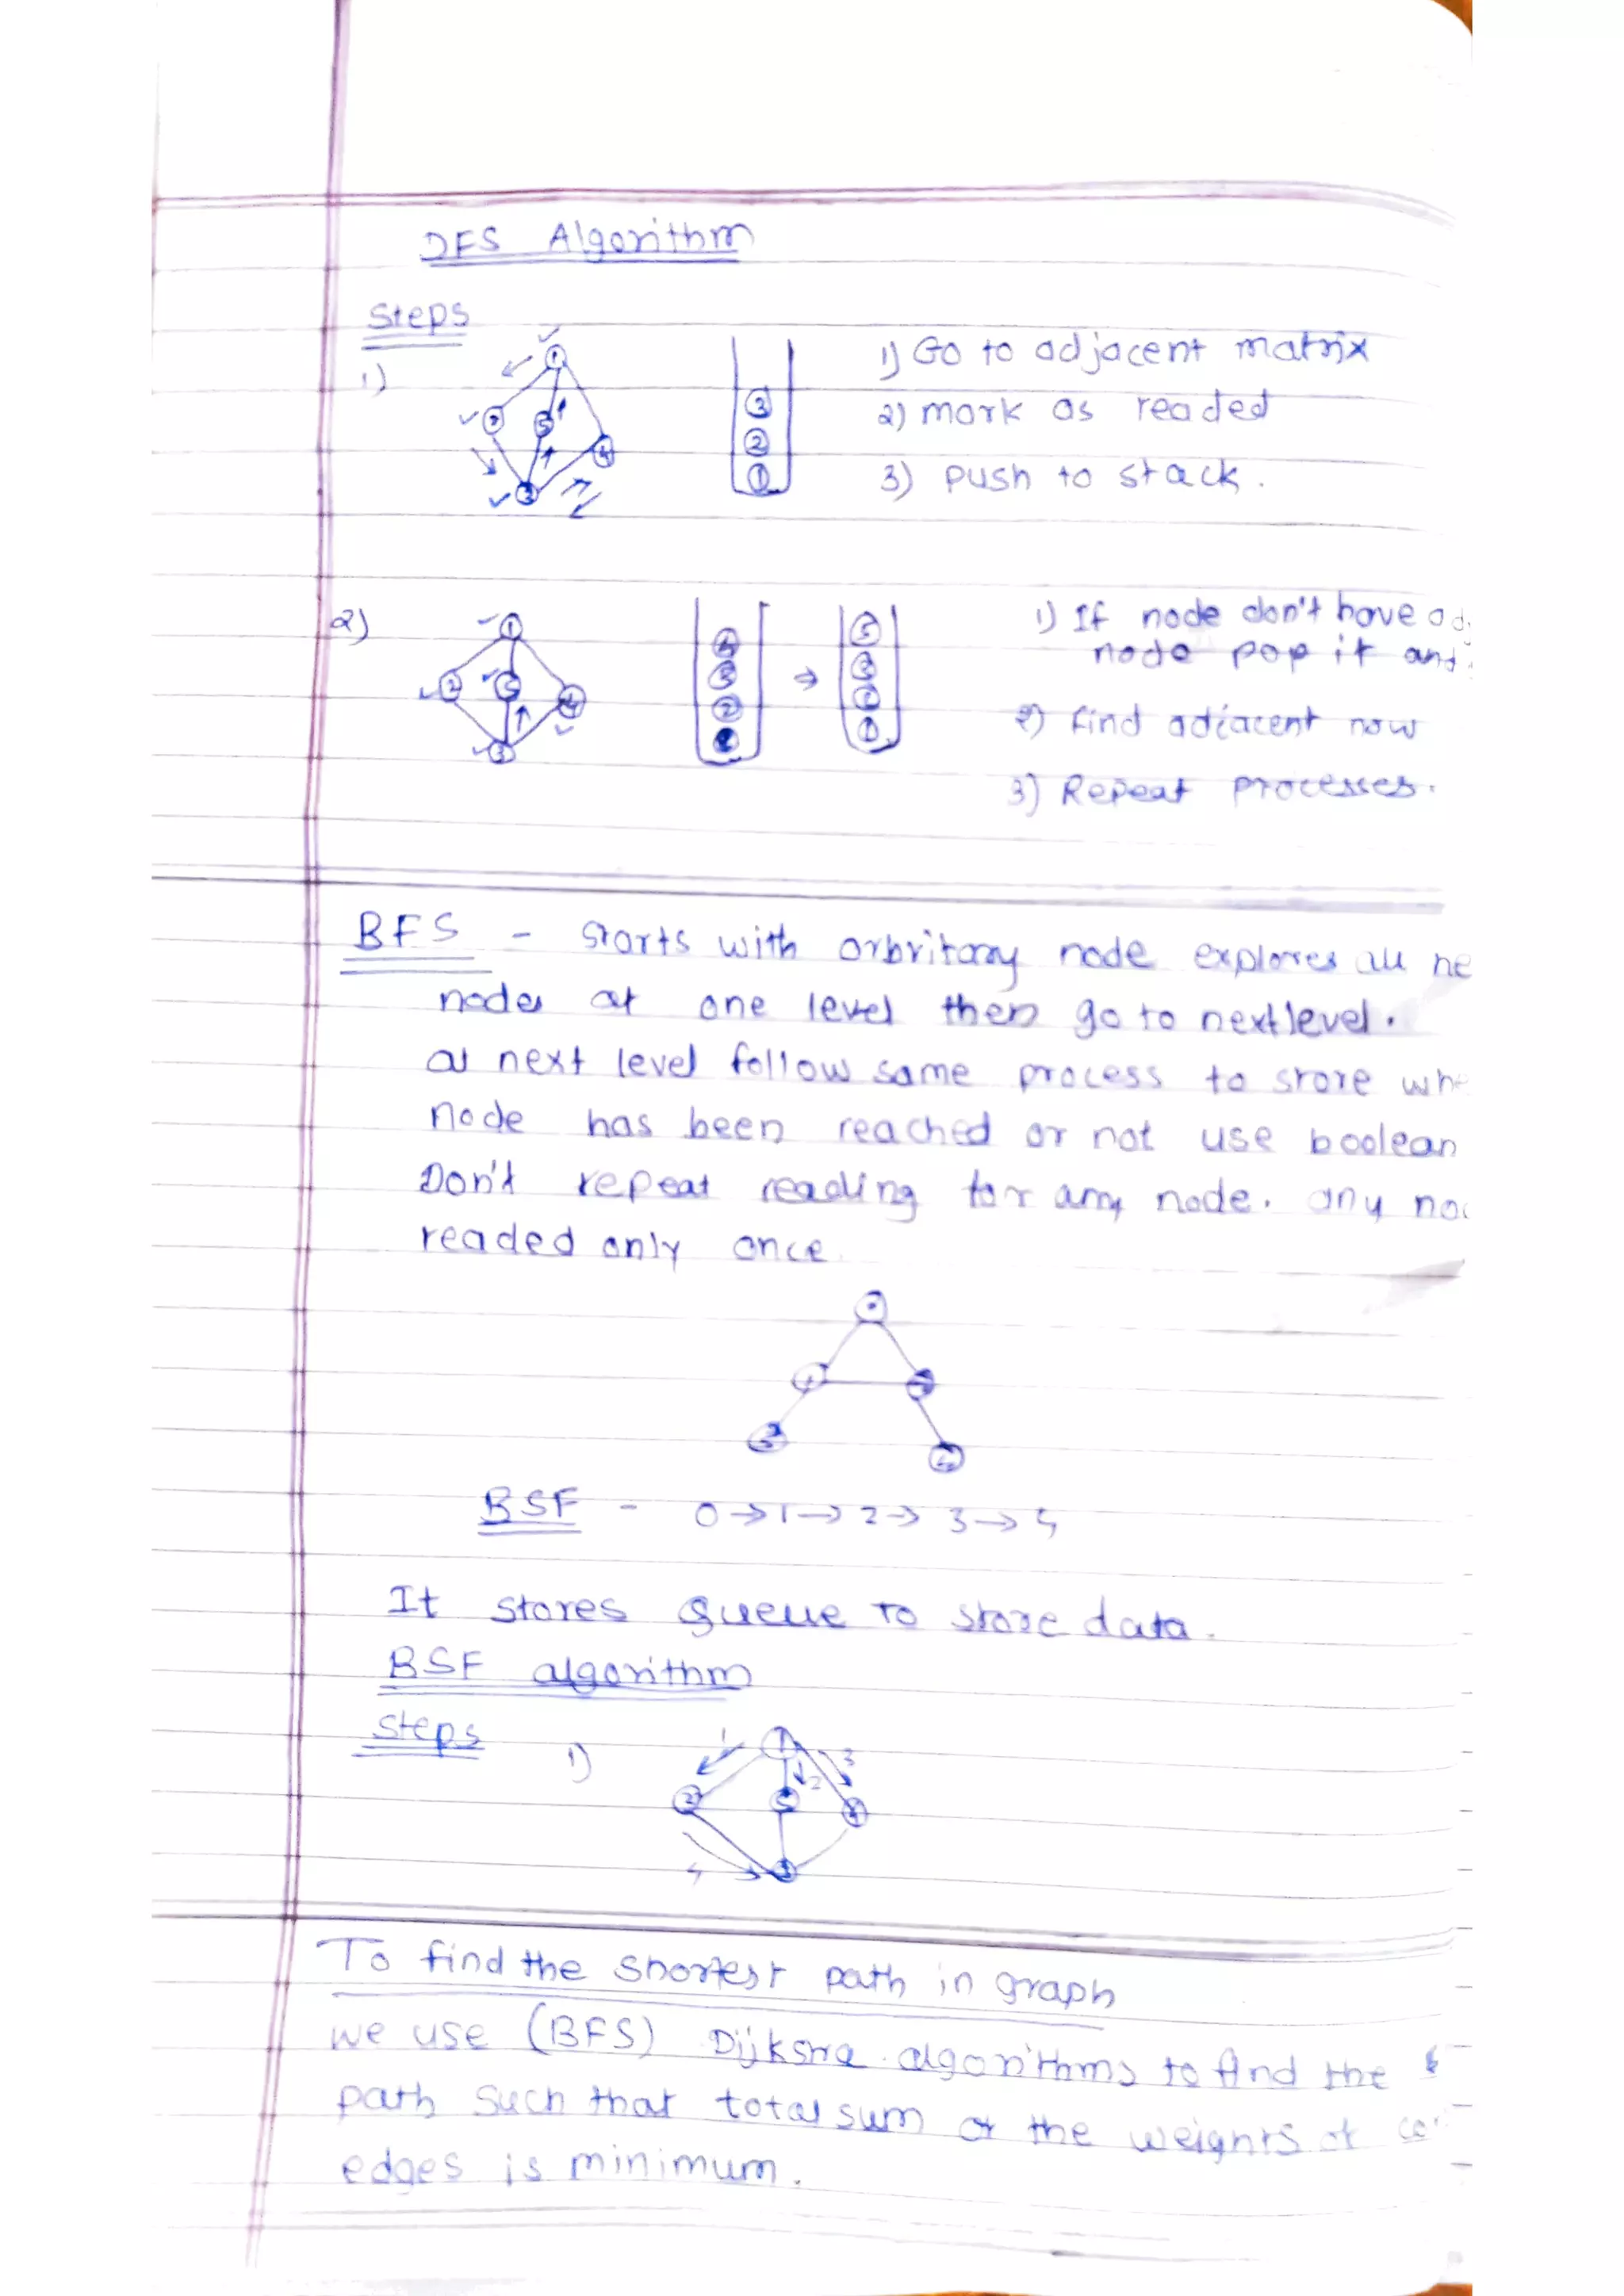 DFS Algorithm
Steps
1)
1
2
5
4
3
3
2
1
1) Go to adjacent matrix
2) mark as readed
3) push to stack.
2)
1
2
5
4
3
4
3
2
→
5
3
2
1
1) If node don't have ad
node pop it and
2) find adjacent now
3) Repeat processes.
BFS - starts with arbvitary node explores all ne
nodes at one level then go to next level.
at next level follow same process to store whe
node has been reached or not use boolean
Don't repeat reading for any node. any no
readed only once
0
1
2
3
4
BSF - 0→1→2→3→4
It stores queue to store data.
BSF algorithm
steps
1)
1
1
2
3
2
5
4
4
3
To find the shortest path in graph
we use (BFS) Dijksra algorithms to find the
path such that total sum of the weights of
edges is minimum.